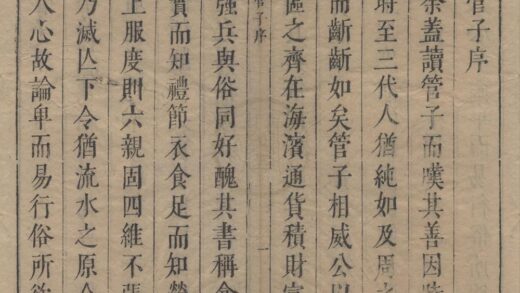 管子序
余蓋讀管子而嘆其善因時
時至三代人猶純如及周
而斷斷如矣管子相威公以
區之齊在海濱通貨積財富
管子序 一
強兵與俗同好醜其書稱倉
實而知禮節衣食足而知榮
上服度則六親固四維不張
乃滅亾下令猶流水之原令
人心故論卑而易行俗所欲